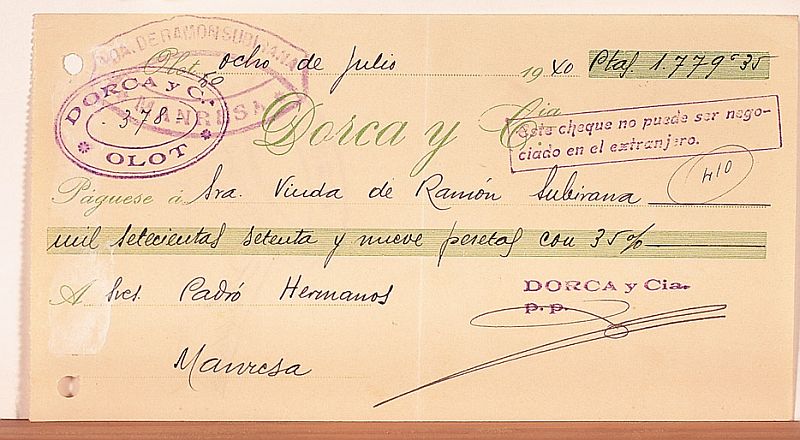 VDA. DE RAMON SUBIRANA
MANRESA
Olot ocho de Julio 1940 Ptas. 1.779'35
DORCA y C.ª
378
OLOT
Dorca y Cia
Este cheque no puede ser nego-
ciado en el extranjero.
410
Páguese á Sra. Viuda de Ramón Subirana
mil setecientas setenta y nueve pesetas con 35%
A Sres. Padró Hermanos
DORCA y Cia.
p. p.
Manresa